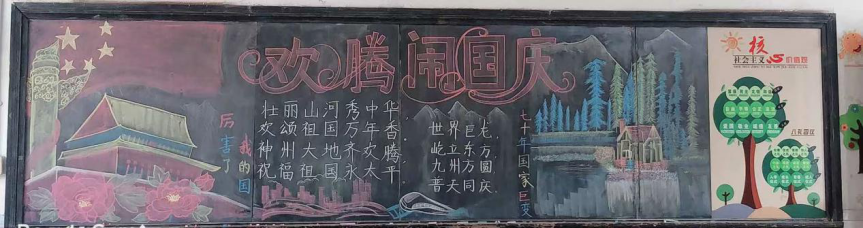 欢腾闹国庆
厉害了
我的国
壮丽山河秀中华
欢颂祖国万年香
神州大地齐欢腾
祝福祖国永太平
世界巨龙
屹立东方
九州方圆
普天同庆
七十年国家巨变
社会主义核心价值观
八礼四仪